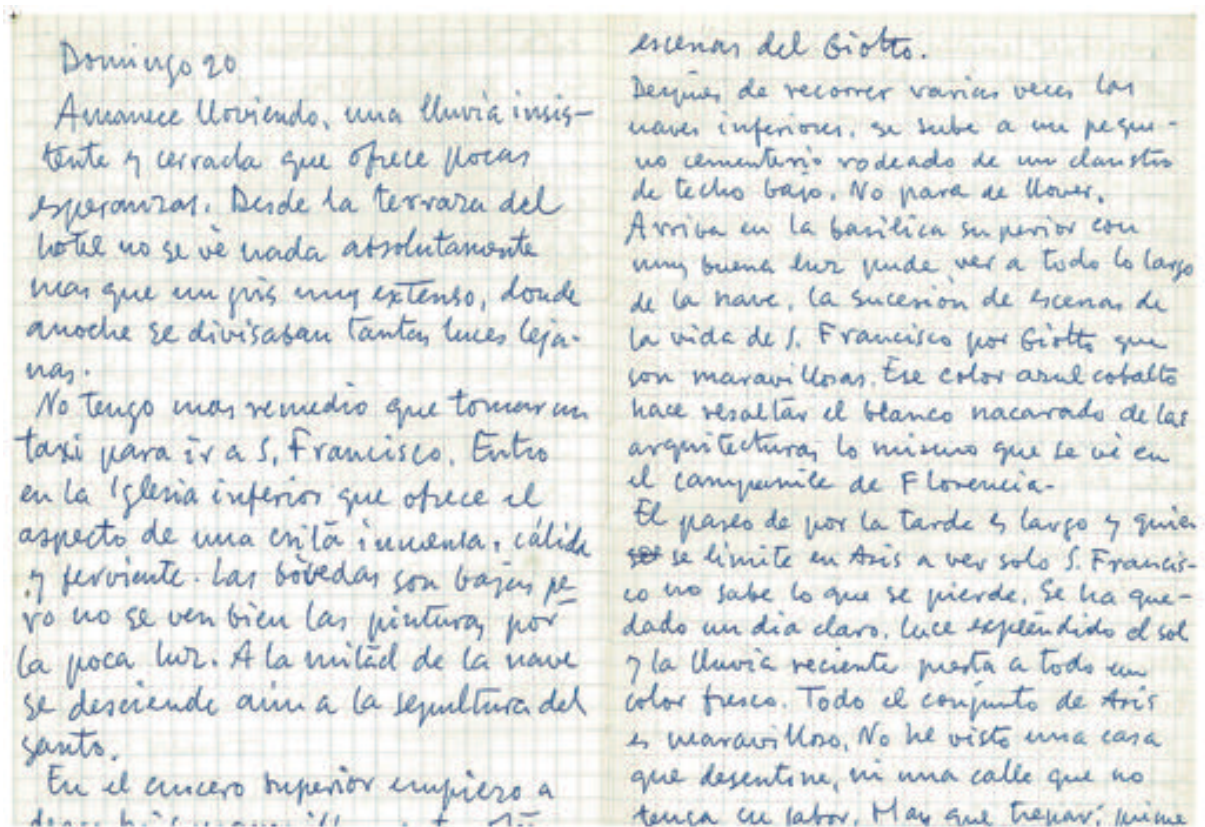 Domingo 20
Amanece lloviendo, una lluvia insis-
tente y cerrada que ofrece pocas
esperanzas. Desde la terraza del
hotel no se vé nada absolutamente
mas que un gris muy extenso, donde
anoche se divisaban tantas luces leja-
nas.
No tengo mas remedio que tomar un
taxi para ir a S. Francisco. Entro
en la Iglesia inferior que ofrece el
aspecto de una inmensa, cálida
y ferviente. Las bóvedas son bajas pe
ro no se ven bien las pinturas por
la poca luz. A la mitad de la nave
se desciende aun a la sepultura del
santo.
En el crucero superior empiezo a
escenas del Giotto.
Despues de recorrer varias veces las
naves inferiores, se sube a un peque-
no cementerio rodeado de un claustro
de techo bajo. No para de llover.
Arriba en la basilica superior con
muy buena luz pude ver a todo lo largo
de la nave, la sucesión de escenas de
la vida de S. Francisco por Giotto que
son maravillosas. Ese color azul cobalto
hace resaltar el blanco nacarado de las
arquitecturas lo mismo que se vé en
el campanile de Florencia-
El paseo de por la tarde es largo y quien
se limite en Asis a ver solo S. Francis-
co no sabe lo que se pierde. Se ha que-
dado un dia claro, luce espléndido el sol
y la lluvia reciente presta a todo un
color fresco. Todo el conjunto de Asis
es maravilloso. No he visto una casa
que desentone, ni una calle que no
tenga su sabor. Hay que trepar,